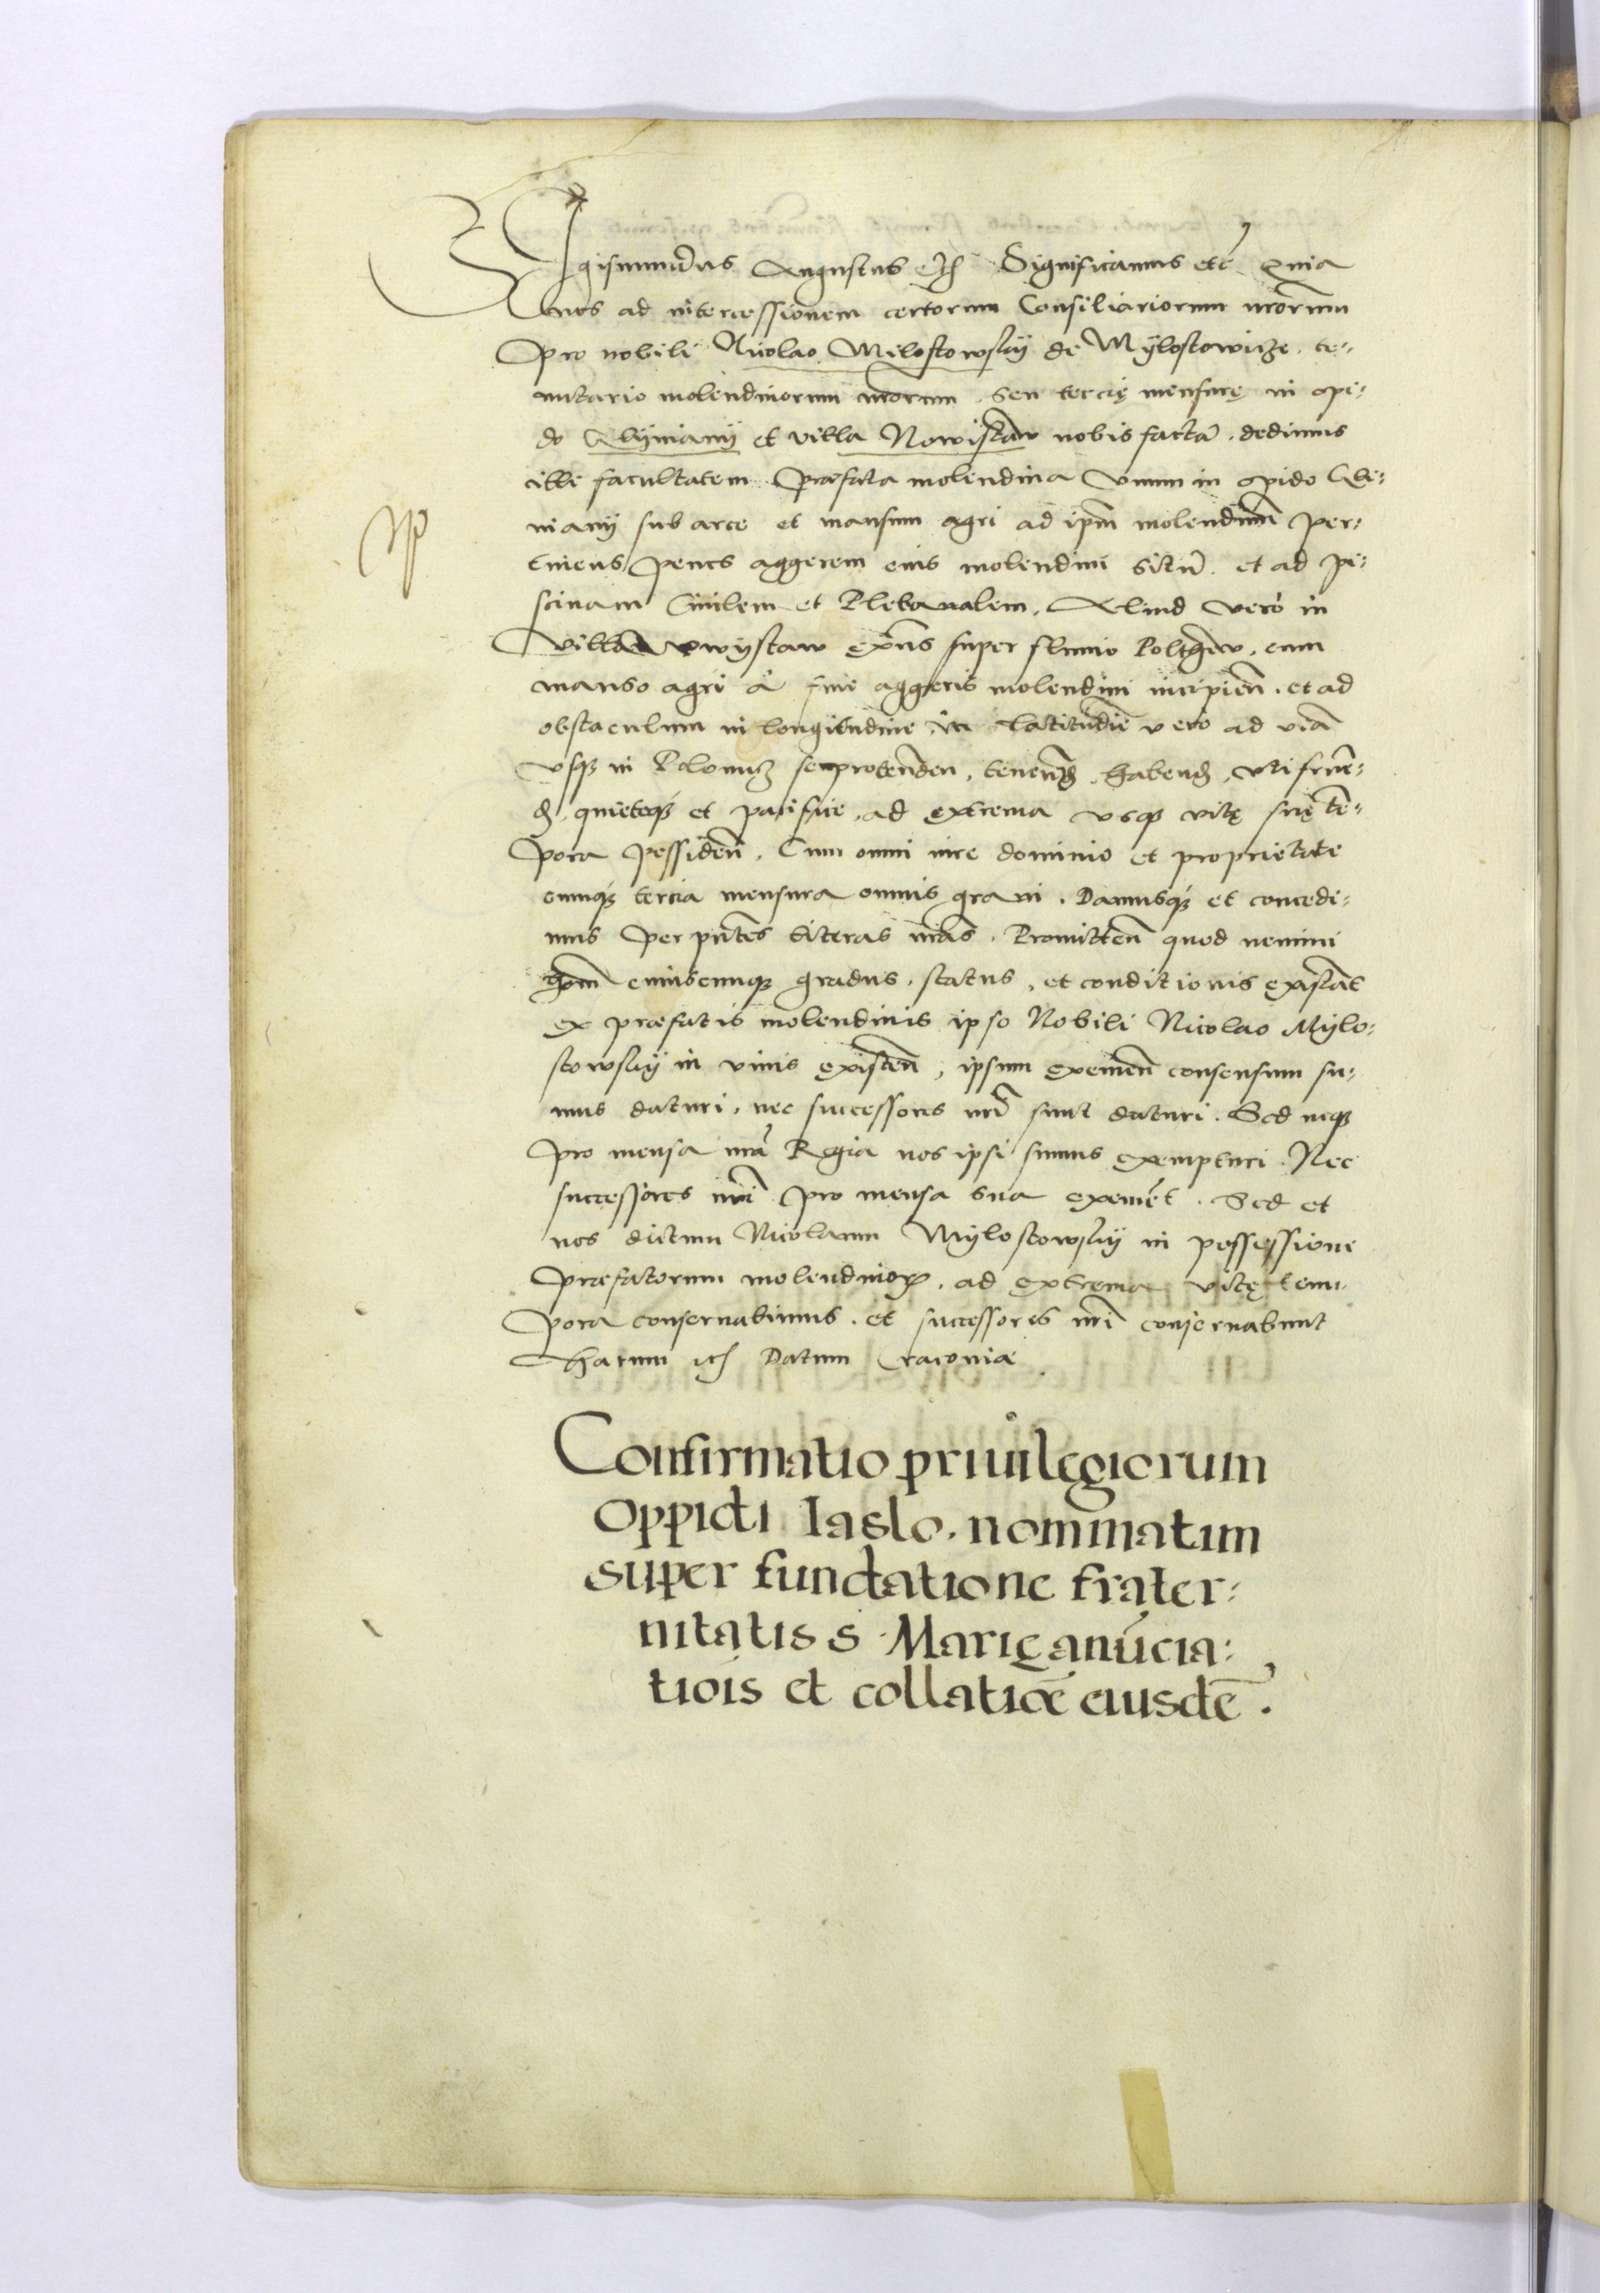 Sigismundus Augustus etc Significamus etc̃ Quia
nos ad intercessionem certorum Consiliariorum nr̃orum
pro nobili Nicolao Milostowsky de Mÿlostowicze. te-
nutario molendinorum nr̃orum. seu tercię mensurę in opi-
do Glÿnianÿ et villa Nowistaw nobis factã. dedimus
illi facultatem præfata molendina Vnum in opido Gli-
nianÿ sub arce et mansum agri ad ipm̃ molendinũ per-
tinens penes aggerem eius molendini sitũ. et ad pi-
scinam Ciuilem et Plebanalem. Aliud vero in
villa Nowÿstaw exñs super fluuio Polthew. cum
manso agri à fine aggeris molendini incipieñ. et ad
obstaculum in longitudine in latitudĩe vero ad viã
vsq3 in se protendeñ. teneñd. habeñd. vtifrue-
ñd. quieteq3 et pacifice. ad extrema vsq3 vitę suę tẽ-
pora possideñ. Cum omni iure dominio et proprietate
cumq3 tercia mensura omnis grani. Damusq3 et concedi-
mus per pñtes literas nr̃as. Promitteñ quod nemini
hom̃ cuiuscumq3 gradus. status. et conditionis existãt
ex præfatis molendinis ipso Nobili Nicolao Mÿlo-
stowskÿ in viuis existeñ, ipsum exemeñ consensum su-
mus daturi. nec successores nr̃i sunt daturi. Sed neq3
pro mensa nr̃a Regia nos ipsi sumus exempturi. Nec
successores nr̃i pro mensa sua exemẽt. Sed et
nos dictum Nicolaum Mÿlostowskÿ in possessione
præfatorum molendinoꝝ. ad extrema vitę tem-
pora conseruabimus. et successores nr̃i conseruabunt
Harum etc Datum Cracoviæ
Confirmatio priuilegiorum
oppidi Iaslo. nominatim
super fundatione frater-
nitatis s. Marię anũcia-
tiõis et collatiõe eiusdẽ.